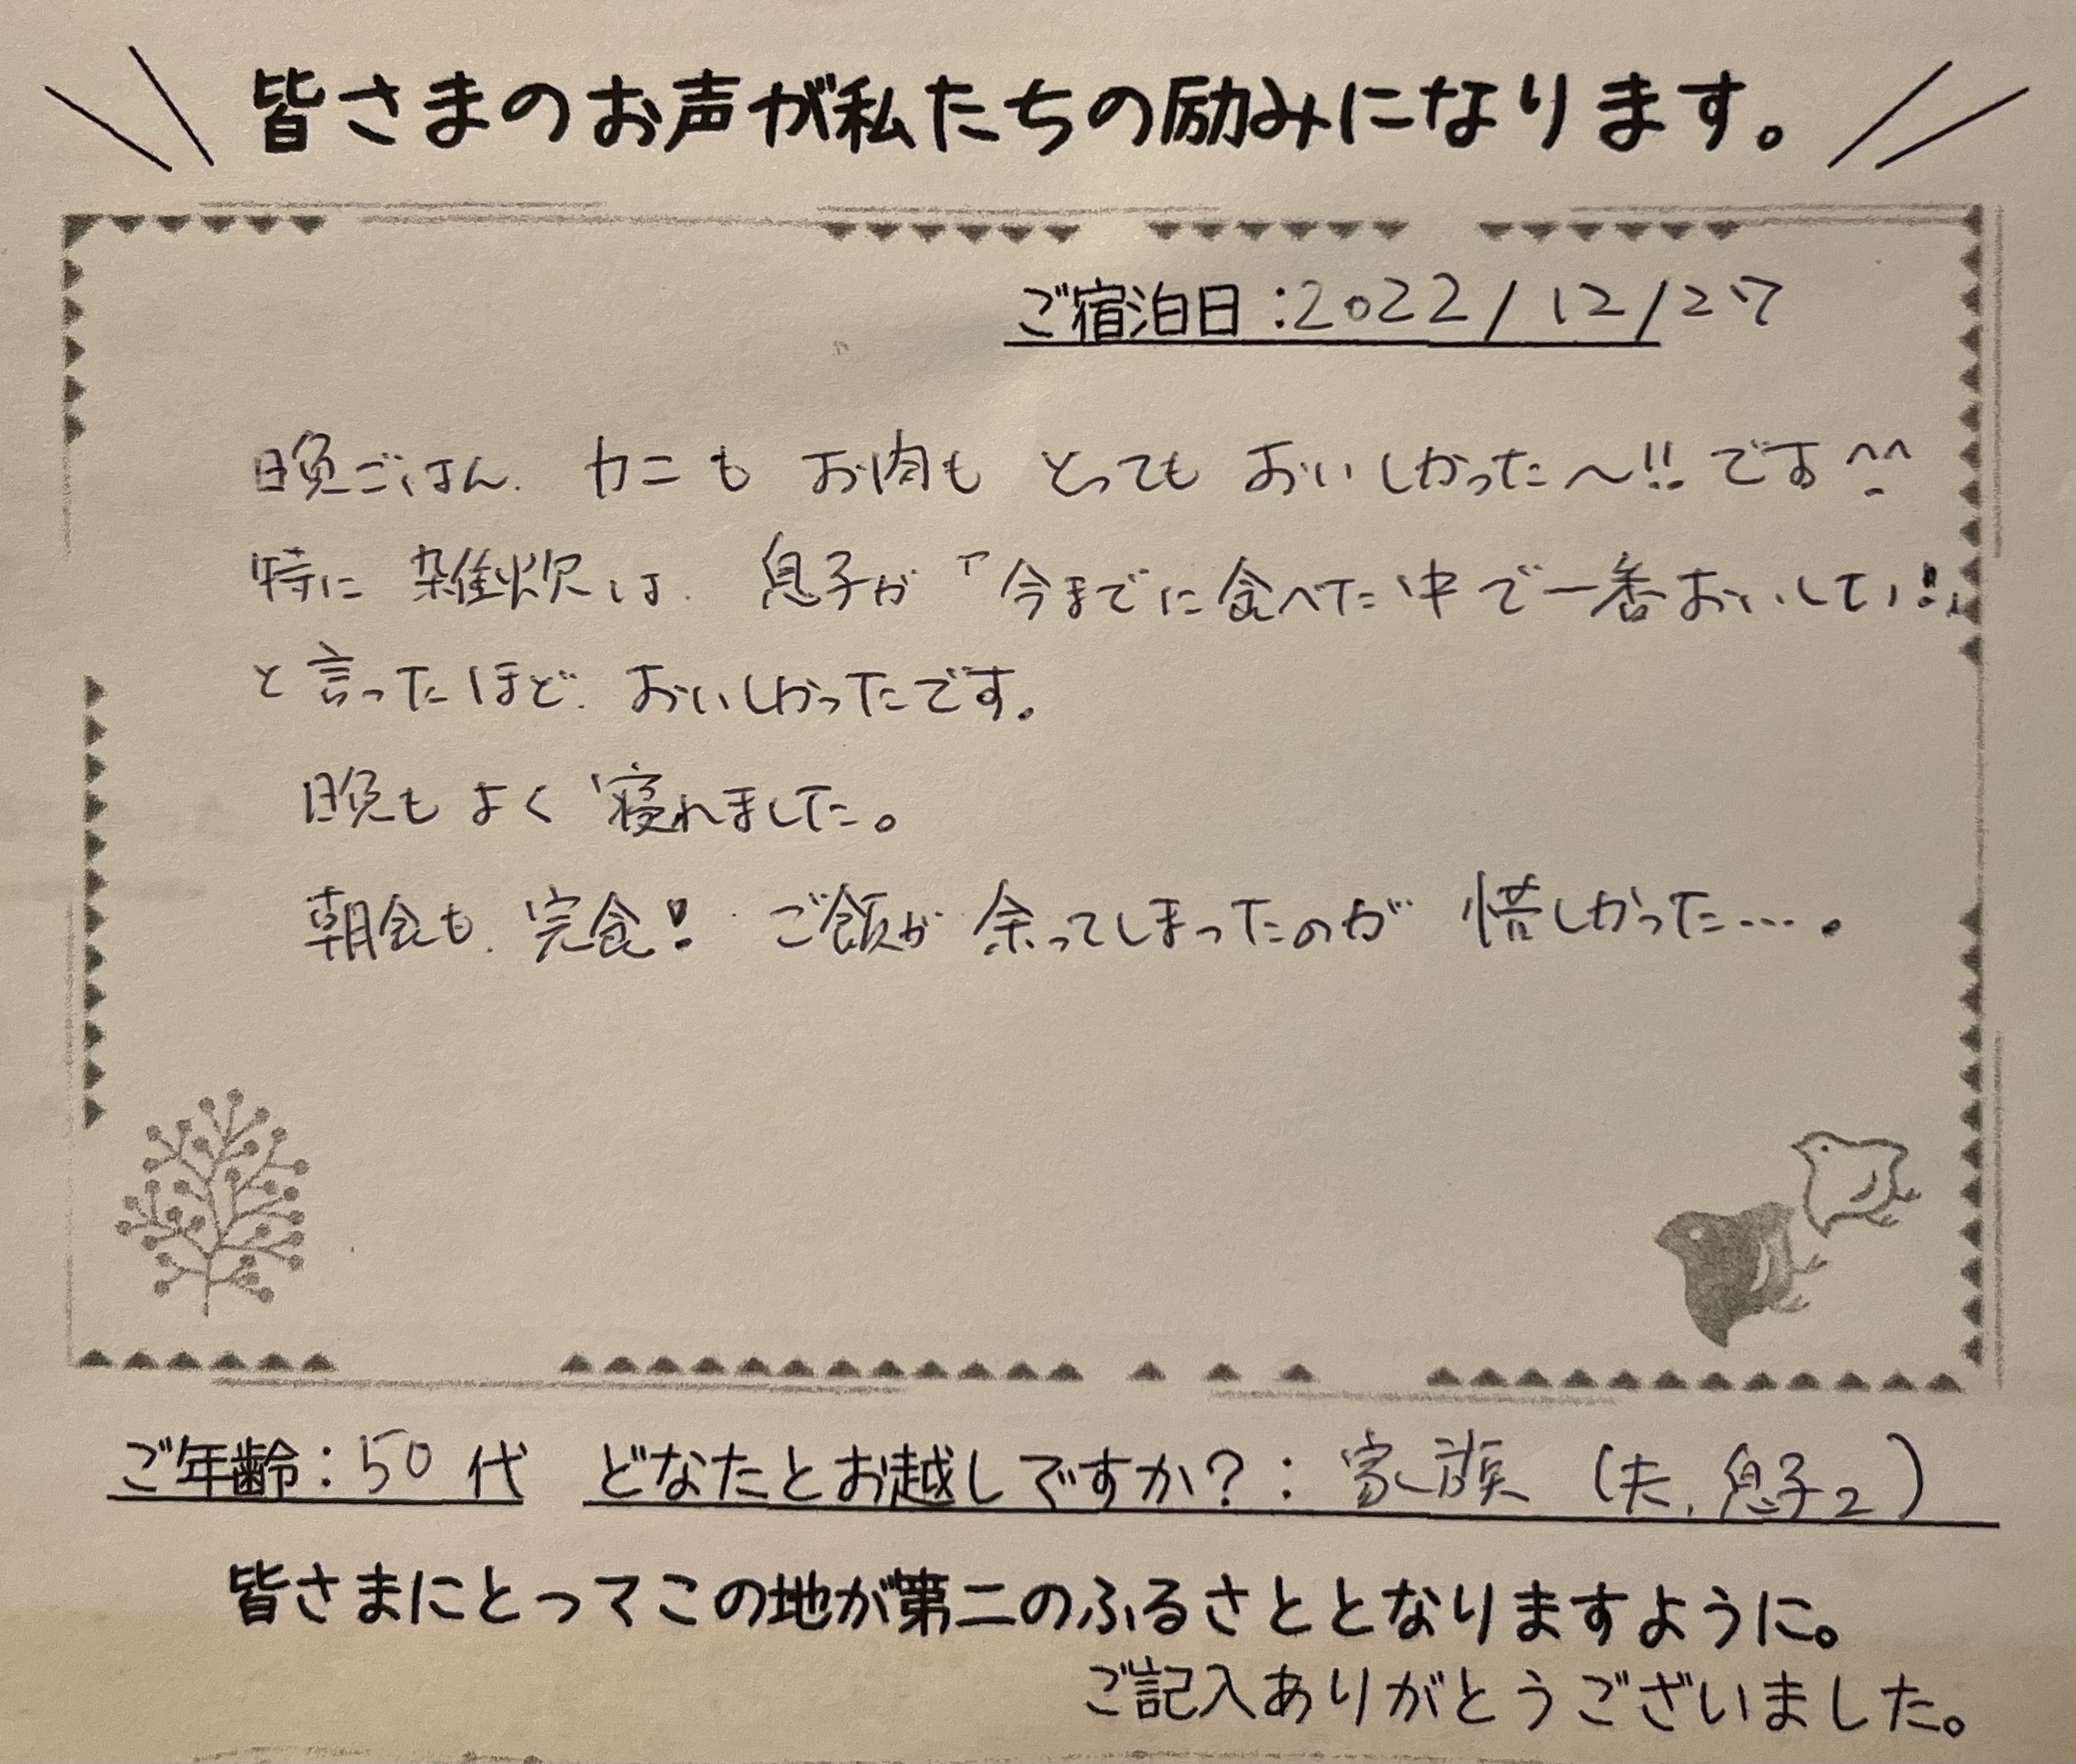 皆さまのお声が私たちの励みになります。
ご宿泊日:2022/12/27
晩ごはん、カニも お肉も とっても おいしかった〜!!です^^
特に 雑炊は、息子が「今までに食べた中で一番おいしい!」
と言ったほど、おいしかったです。
晩も よく 寝れました。
朝食も、完食! ご飯が 余ってしまったのが 惜しかった…。
ご年齢:50代 どなたとお越しですか?:家族(夫、息子2)
皆さまにとってこの地が第二のふるさととなりますように。
ご記入ありがとうございました。